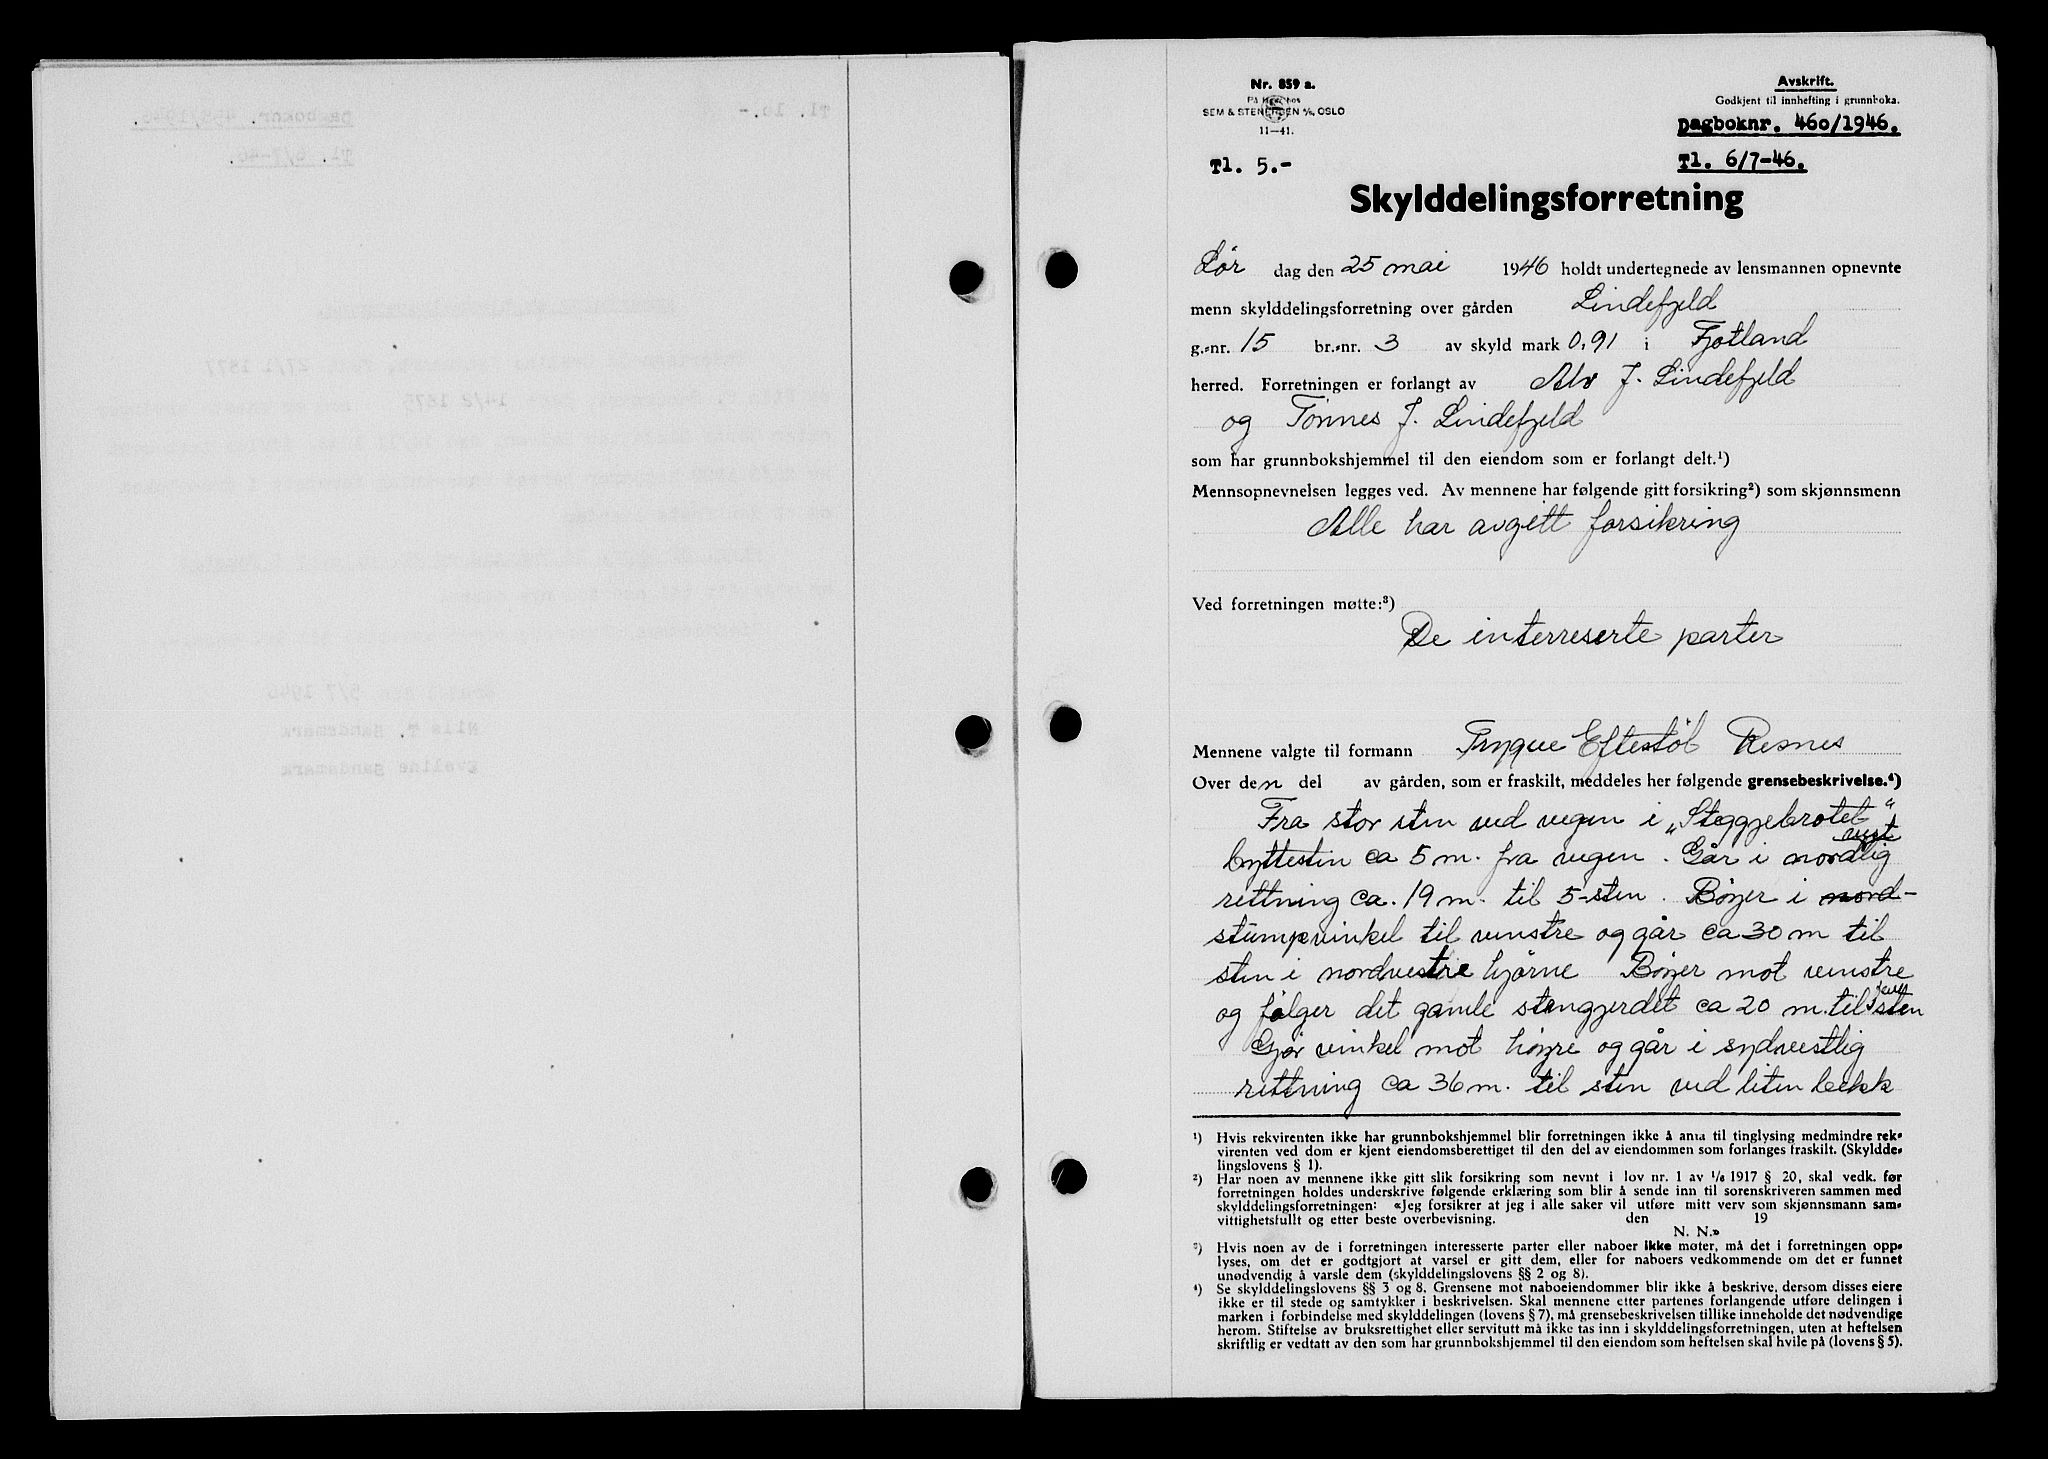 Nr. 859 a.
SEM & STENERSEN A/S, OSLO
11—41.
Avskrift.
Godkjent til innhefting i grunnboka.
Dagboknr. 460/1946.
Tl. 5.-
Tl. 6/7-46.
Skylddelingsforretning
Lør dag den 25 mai 1946 holdt undertegnede av lensmannen opnevnte
menn skylddelingsforretning over gården Lindefjeld
g.-nr. 15 br.-nr. 3 av skyld mark 0,91 i Fjotland
herred. Forretningen er forlangt av Alv J. Lindefjeld
og Tønnes J. Lindefjeld
som har grunnbokshjemmel til den eiendom som er forlangt delt.¹)
Mennsopnevnelsen legges ved. Av mennene har følgende gitt forsikring²) som skjønnsmenn
Alle har avgett forsikring
Ved forretningen møtte:³)
De interreserte parter
Mennene valgte til formann Trygve Eftestøl Resnes
Over den del av gården, som er fraskilt, meddeles her følgende grensebeskrivelse.⁴)
Fra stor sten ved vegen i „Steggjebrotet“
byttestin ca 5 m. fra vegen. Går i nordvestlig
rettning ca. 19 m. til 5-sten. Bøyer i nord-
stumpvinkel til venstre og går ca 30 m til
sten i nordvestre hjørne Bøyer mot venstre
og følger det gamle stengjerdet ca 20 m. til sten
Gjør vinkel mot høyre og går i sydvestlig
rettning ca 36 m. til sten ved liten bekk
¹) Hvis rekvirenten ikke har grunnbokshjemmel blir forretningen ikke å anta til tinglysing medmindre rek-
virenten ved dom er kjent eiendomsberettiget til den del av eiendommen som forlanges fraskilt. (Skyldde-
lingslovens § 1).
²) Har noen av mennene ikke gitt slik forsikring som nevnt i lov nr. 1 av 1/6 1917 § 20, skal vedk. før
forretningen holdes underskrive følgende erklæring som blir å sende inn til sorenskriveren sammen med
skylddelingsforretningen: «Jeg forsikrer at jeg i alle saker vil utføre mitt verv som skjønnsmann sam-
vittighetsfullt og etter beste overbevisning. den 19
N. N.»
³) Hvis noen av de i forretningen interesserte parter eller naboer ikke møter, må det i forretningen opp-
lyses, om det er godtgjort at varsel er gitt dem, eller for naboers vedkommende om det er funnet
unødvendig å varsle dem (skylddelingslovens §§ 2 og 8).
⁴) Se skylddelingslovens §§ 3 og 8. Grensene mot naboeiendommer blir ikke å beskrive, dersom disses eiere
ikke er til stede og samtykker i beskrivelsen. Skal mennene etter partenes forlangende utføre delingen i
marken i forbindelse med skylddelingen (lovens § 7), må grensebeskrivelsen tillike inneholde det nødvendige
herom. Stiftelse av bruksrettighet eller servitutt må ikke tas inn i skylddelingsforretningen, uten at heftelsen
skriftlig er vedtatt av den som har grunnbokshjemmel til den eiendom som heftelsen skal hvile på (lovens § 5).